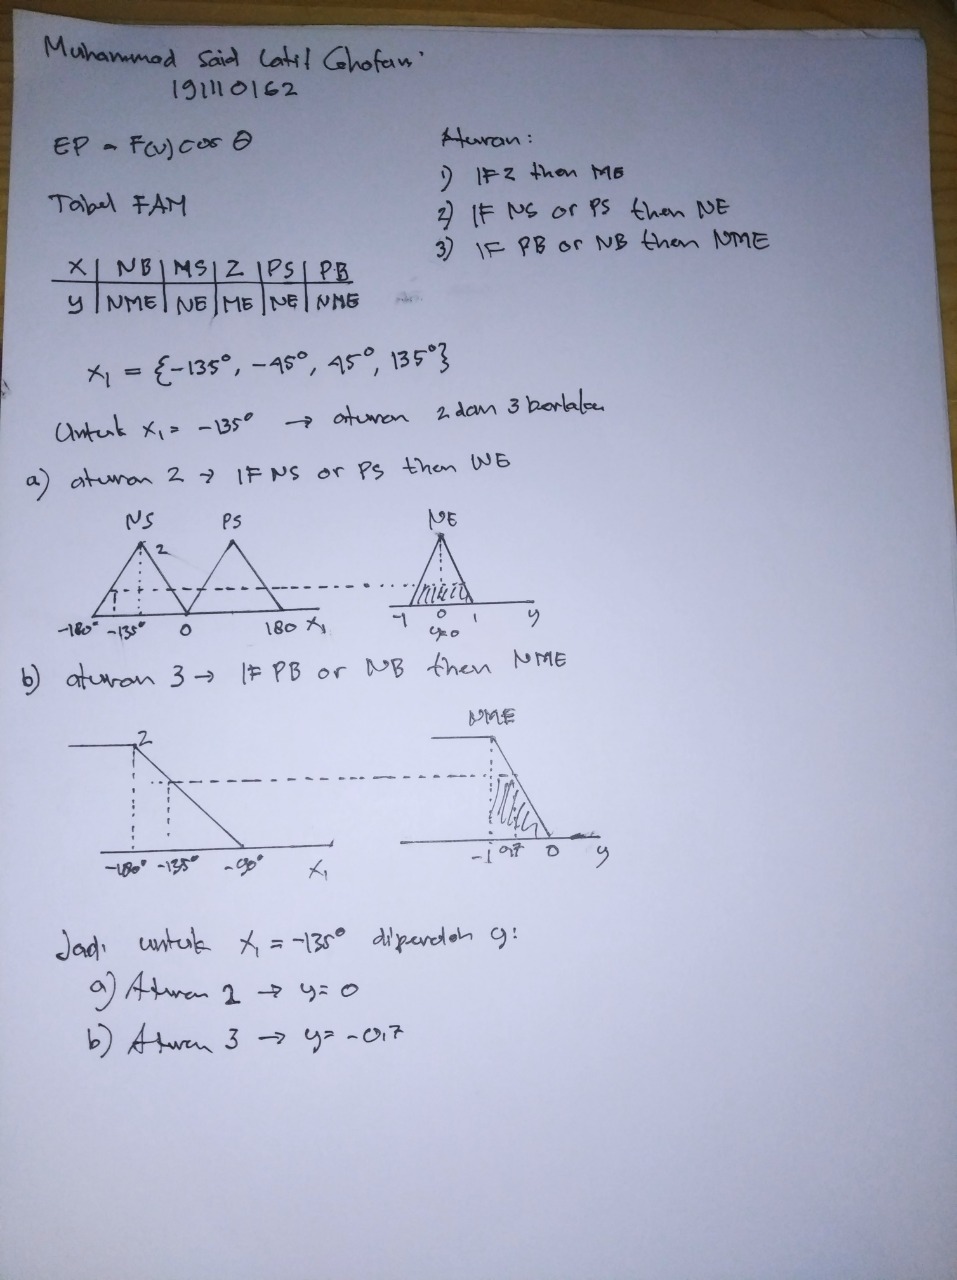 Muhammad Said Latif Ghofari
191110162
EP = F(v) cos θ
Tabel FAM
X | NB | MS | Z | PS | PB
y | NME | NE | ME | NE | NME
Aturan:
1) IF Z then ME
2) IF NS or PS then NE
3) IF PB or NB then NME
X₁ = {-135°, -45°, 45°, 135°}
Untuk X₁ = -135° → aturan 2 dan 3 berlaku
a) aturan 2 → IF NS or PS then NE
NS PS NE
2
-180° -135° 0 180 X₁ -1 0 1 y
y=0
b) aturan 3 → IF PB or NB then NME
NME
2
-180° -135° -90° X₁ -1 0,7 0 y
Jadi untuk X₁ = -135° diperoleh y:
a) Aturan 2 → y = 0
b) Aturan 3 → y = -0,7